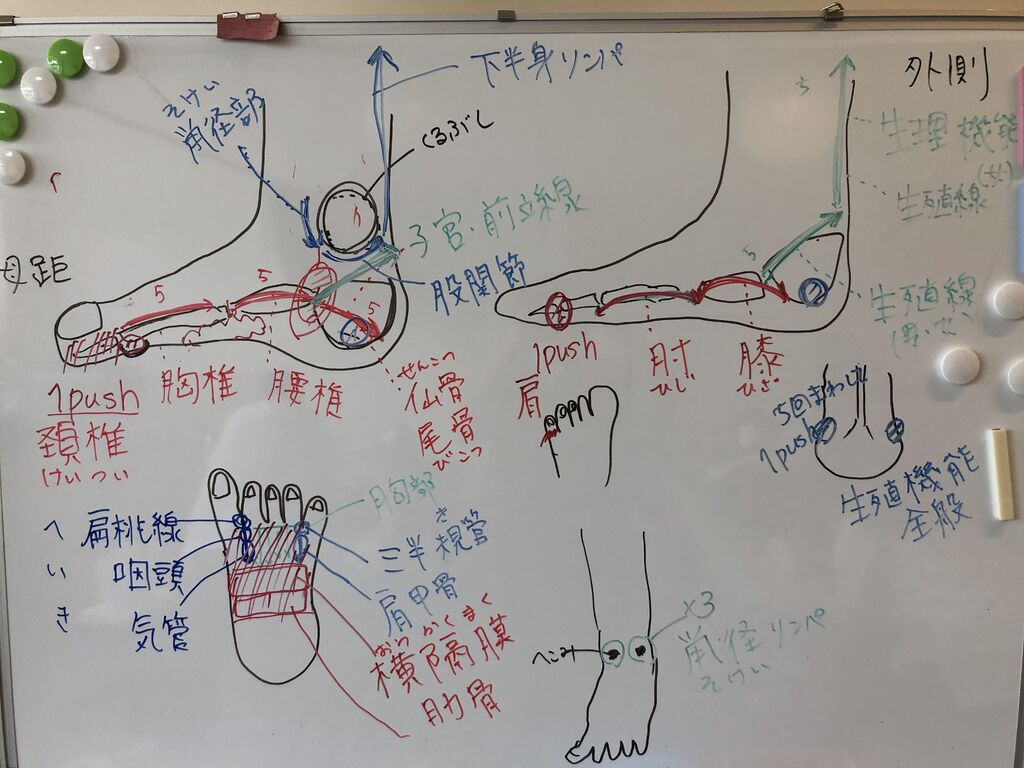 下半身リンパ
そけい
くるぶし
母距
5
5
5
子宮・前立線
股関節
1push
頚椎
けいつい
胸椎
腰椎
せんこつ
仙骨
尾骨
びこつ
外側
5
5
生理機能
生殖線
生殖線
1push
肩
肘
ひじ
膝
ひざ
5回まわし
1push
生殖機能
全般
へいき
扁桃線
咽頭
気管
胸部
き
三半規管
肩甲骨
おうかくまく
横隔膜
肋骨
へこみ
×3
リンパ
そけい